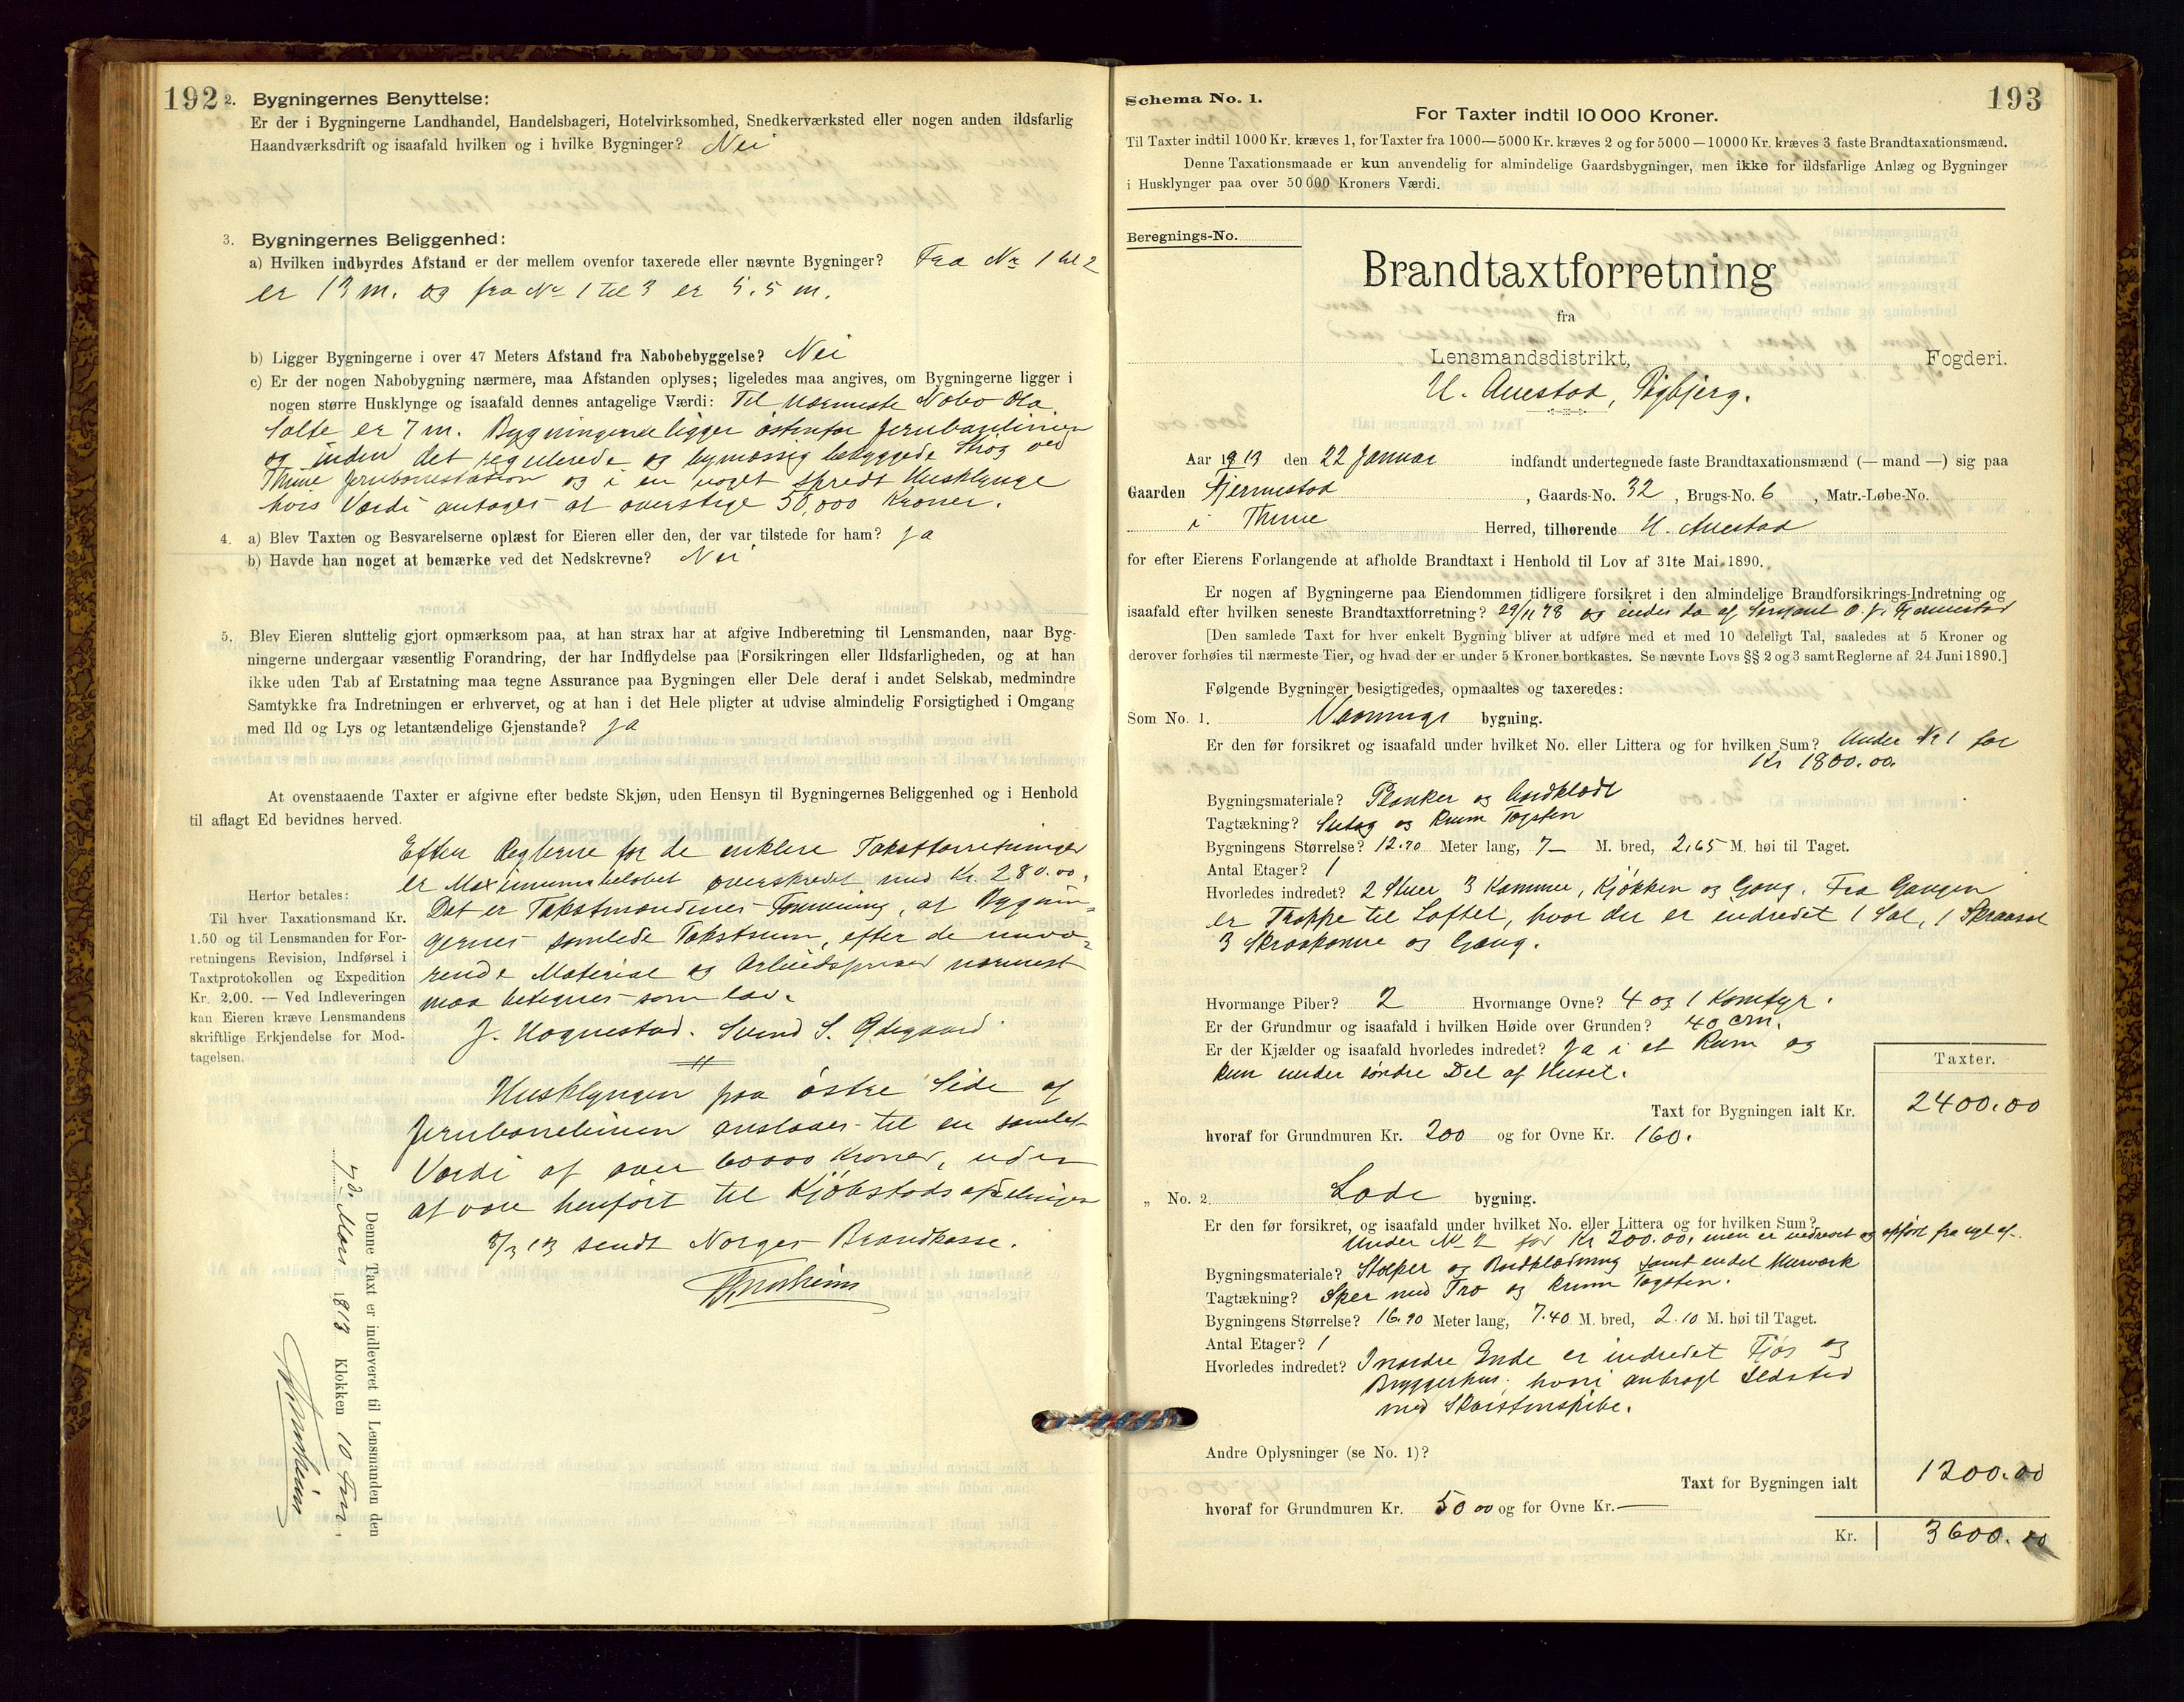 192
2. Bygningernes Benyttelse:
Er der i Bygningerne Landhandel, Handelsbageri, Hotelvirksomhed, Snedkerværksted eller nogen anden ildsfarlig
Haandværksdrift og isaafald hvilken og i hvilke Bygninger? Nei
3. Bygningernes Beliggenhed:
a) Hvilken indbyrdes Afstand er der mellem ovenfor taxerede eller nævnte Bygninger? Fra No 1 til 2
er 13 m. og fra No 1 til 3 er 5.5 m.
b) Ligger Bygningerne i over 47 Meters Afstand fra Nabobebyggelse? Nei
c) Er der nogen Nabobygning nærmere, maa Afstanden oplyses; ligeledes maa angives, om Bygningerne ligger i
nogen større Husklynge og isaafald dennes antagelige Værdi: Til nærmeste Nabo Ola
Salte er 7 m. Bygningerne ligger østenfor Jernbanelinien
og inden det regulerede og bymæssig bebyggede Strøg ved
Thime Jernbanestation og i en noget spredt Husklynge
hvis Værdi antages at overstige 50,000 Kroner.
4. a) Blev Taxten og Besvarelserne oplæst for Eieren eller den, der var tilstede for ham? Ja
b) Havde han noget at bemærke ved det Nedskrevne? Nei
5. Blev Eieren sluttelig gjort opmærksom paa, at han strax har at afgive Indberetning til Lensmanden, naar Byg-
ningerne undergaar væsentlig Forandring, der har Indflydelse paa Forsikringen eller Ildsfarligheden, og at han
ikke uden Tab af Erstatning maa tegne Assurance paa Bygningen eller Dele deraf i andet Selskab, medmindre
Samtykke fra Indretningen er erhvervet, og at han i det Hele pligter at udvise almindelig Forsigtighed i Omgang
med Ild og Lys og letantændelige Gjenstande? Ja
At ovenstaaende Taxter er afgivne efter bedste Skjøn, uden Hensyn til Bygningernes Beliggenhed og i Henhold
til aflagt Ed bevidnes herved.
Efter Reglerne for de enklere Takstforretninger
er Maximumsbeløbet overskredet med Kr. 280.00.
Det er Takstmændenes Formening, at Bygnin-
gernes samlede Takstsum, efter de nuvæ-
rende Materiel og Arbeidspriser nærmest
maa betegnes som lav.
J. Haagnestad. Svend S. Ødegaard.
Herfor betales:
Til hver Taxationsmand Kr.
1.50 og til Lensmanden for For-
retningens Revision, Indførsel i
Taxtprotokollen og Expedition
Kr. 2.00. — Ved Indleveringen
kan Eieren kræve Lensmandens
skriftlige Erkjendelse for Mod-
tagelsen.
Husklyngen paa østre Side af
Jernbanelinien anslaaes til en samlet
Værdi af over 60000 Kroner, uden
at være henført til Kjøbstadsafdelingen
8/3 13 sendt Norges Brandkasse.
Denne Taxt er indleveret til Lensmanden den
Mars 1913 Klokken 10 Form.
193
Schema No. 1.
For Taxter indtil 10 000 Kroner.
Til Taxter indtil 1000 Kr. kræves 1, for Taxter fra 1000—5000 Kr. kræves 2 og for 5000—10000 Kr. kræves 3 faste Brandtaxationsmænd.
Denne Taxationsmaade er kun anvendelig for almindelige Gaardsbygninger, men ikke for ildsfarlige Anlæg og Bygninger
i Husklynger paa over 50 000 Kroners Værdi.
Beregnings-No.
Brandtaxtforretning
fra
Lensmandsdistrikt, Fogderi.
U. Auestad, Rigbjerg.
Aar 1913 den 22 Januar indfandt undertegnede faste Brandtaxationsmænd (— mand —) sig paa
Gaarden Fjermestad, Gaards-No. 32, Brugs-No. 6, Matr.-Løbe-No.
i Thime Herred, tilhørende U. Auestad
for efter Eierens Forlangende at afholde Brandtaxt i Henhold til Lov af 31te Mai 1890.
Er nogen af Bygningerne paa Eiendommen tidligere forsikret i den almindelige Brandforsikrings-Indretning og
isaafald efter hvilken seneste Brandtaxtforretning? 29/11 78 og eiedes da af Sersjant O. J. Fjermestad
[Den samlede Taxt for hver enkelt Bygning bliver at udføre med et med 10 deleligt Tal, saaledes at 5 Kroner og
derover forhøies til nærmeste Tier, og hvad der er under 5 Kroner bortkastes. Se nævnte Lovs §§ 2 og 3 samt Reglerne af 24 Juni 1890.]
Følgende Bygninger besigtigedes, opmaaltes og taxeredes:
Som No. 1. Vaanings bygning.
Er den før forsikret og isaafald under hvilket No. eller Littera og for hvilken Sum? Under No 1 for
Kr 1800.00.
Bygningsmateriale? Planker og bordklædt
Tagtækning? Sutag og krum Tagsten
Bygningens Størrelse? 12.70 Meter lang, 7— M. bred, 2,65 M. høi til Taget.
Antal Etager? 1
Hvorledes indredet? 2 Stuer 3 Kammer, Kjøkken og Gang. Fra Gangen
er Trappe til Loftet, hvor der er indredet 1 Sal, 1 Skraasal
3 Skraakamre og Gang.
Hvormange Piber? 2 Hvormange Ovne? 4 og 1 Komfyr.
Er der Grundmur og isaafald i hvilken Høide over Grunden? 40 cm.
Er der Kjælder og isaafald hvorledes indredet? Ja i et Rum og
kun under søndre Del af Huset.
Taxter.
Taxt for Bygningen ialt Kr. 2400.00
hvoraf for Grundmuren Kr. 200 og for Ovne Kr. 160.
„ No. 2. Lade bygning.
Er den før forsikret, og isaafald under hvilket No. eller Littera og for hvilken Sum?
Under No 2 for Kr 200.00, men er nedrevet og opført fra nyt af.
Bygningsmateriale? Stolper og Bordklædning samt endel Murværk
Tagtækning? Sper med Tro og krum Tagsten.
Bygningens Størrelse? 16.90 Meter lang, 7.40 M. bred, 2.10 M. høi til Taget.
Antal Etager? 1
Hvorledes indredet? I nordre Ende er indredet Fjøs og
Bryggerhus, hvori anbragt Ildsted
med Skorstenspibe.
Andre Oplysninger (se No. 1)?
Taxt for Bygningen ialt 1200.00
hvoraf for Grundmuren Kr. 50 00 og for Ovne Kr. —
Kr. 3600.00